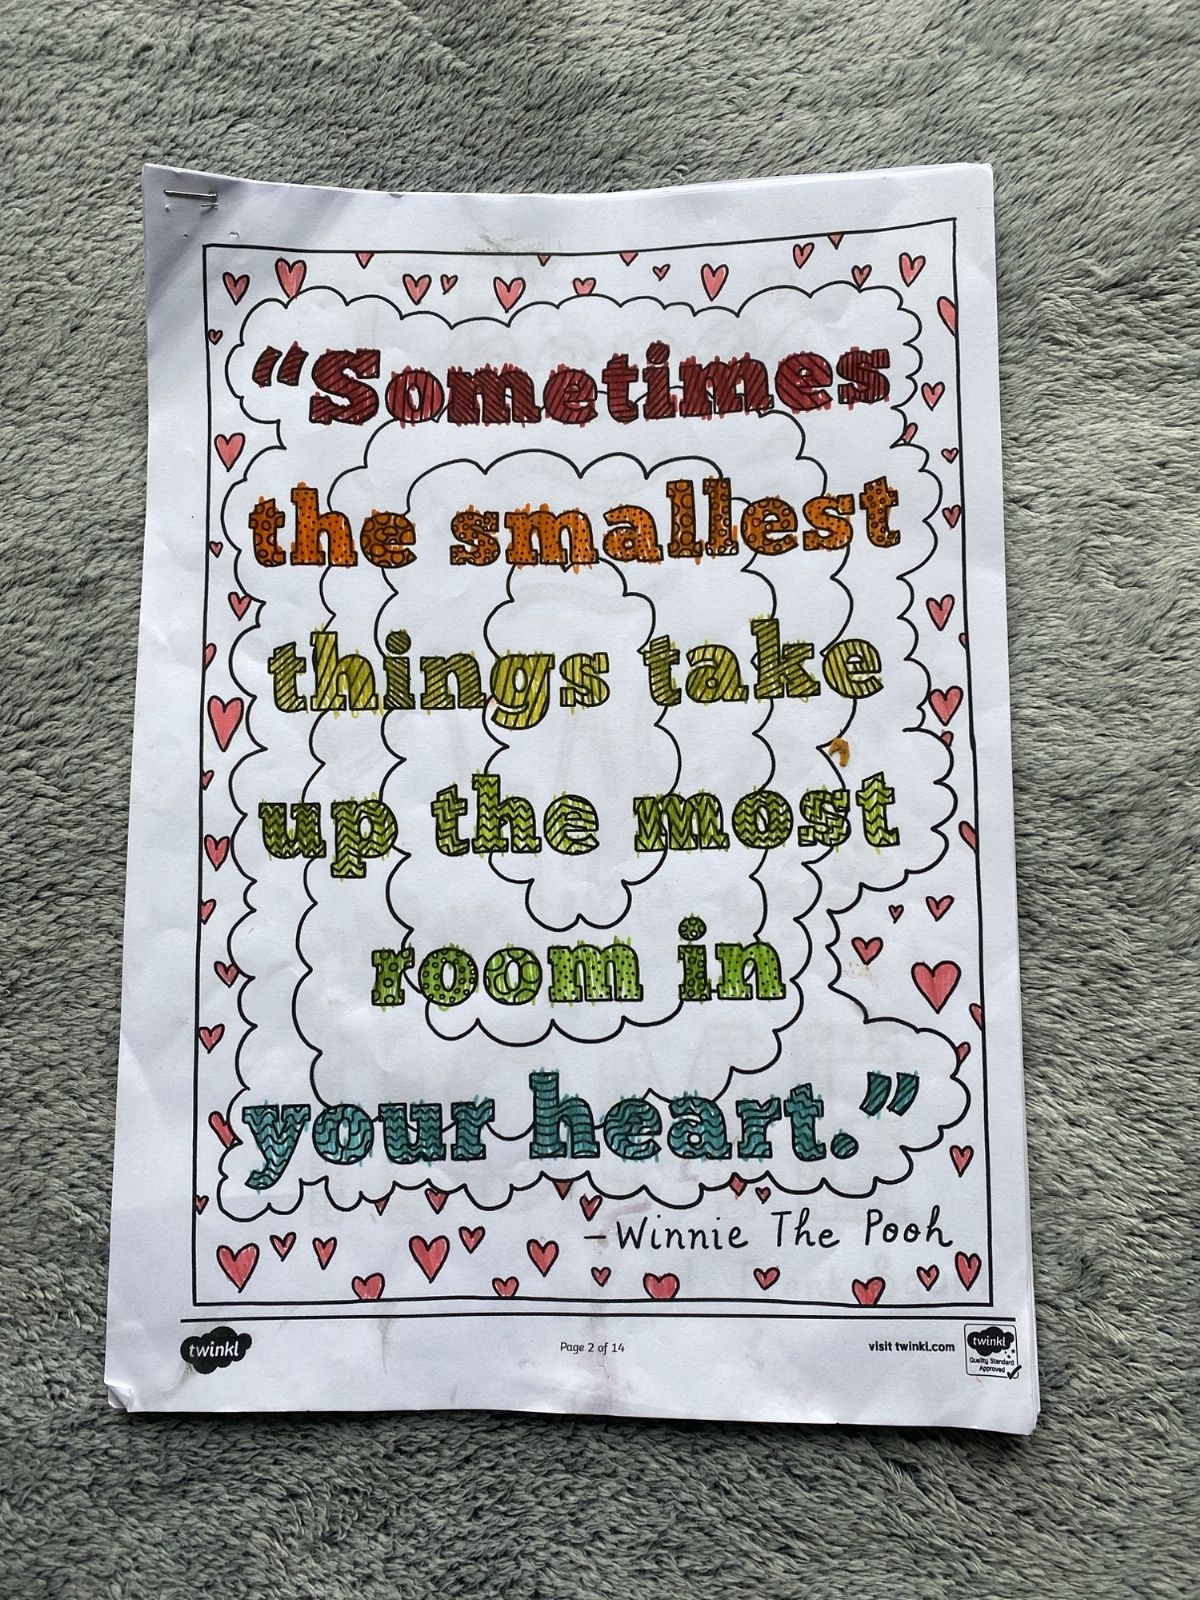 “Sometimes
the smallest
things take
up the most
room in
your heart.”
–Winnie The Pooh
twinkl
Page 2 of 14
visit twinkl.com
twinkl
Quality Standard
Approved